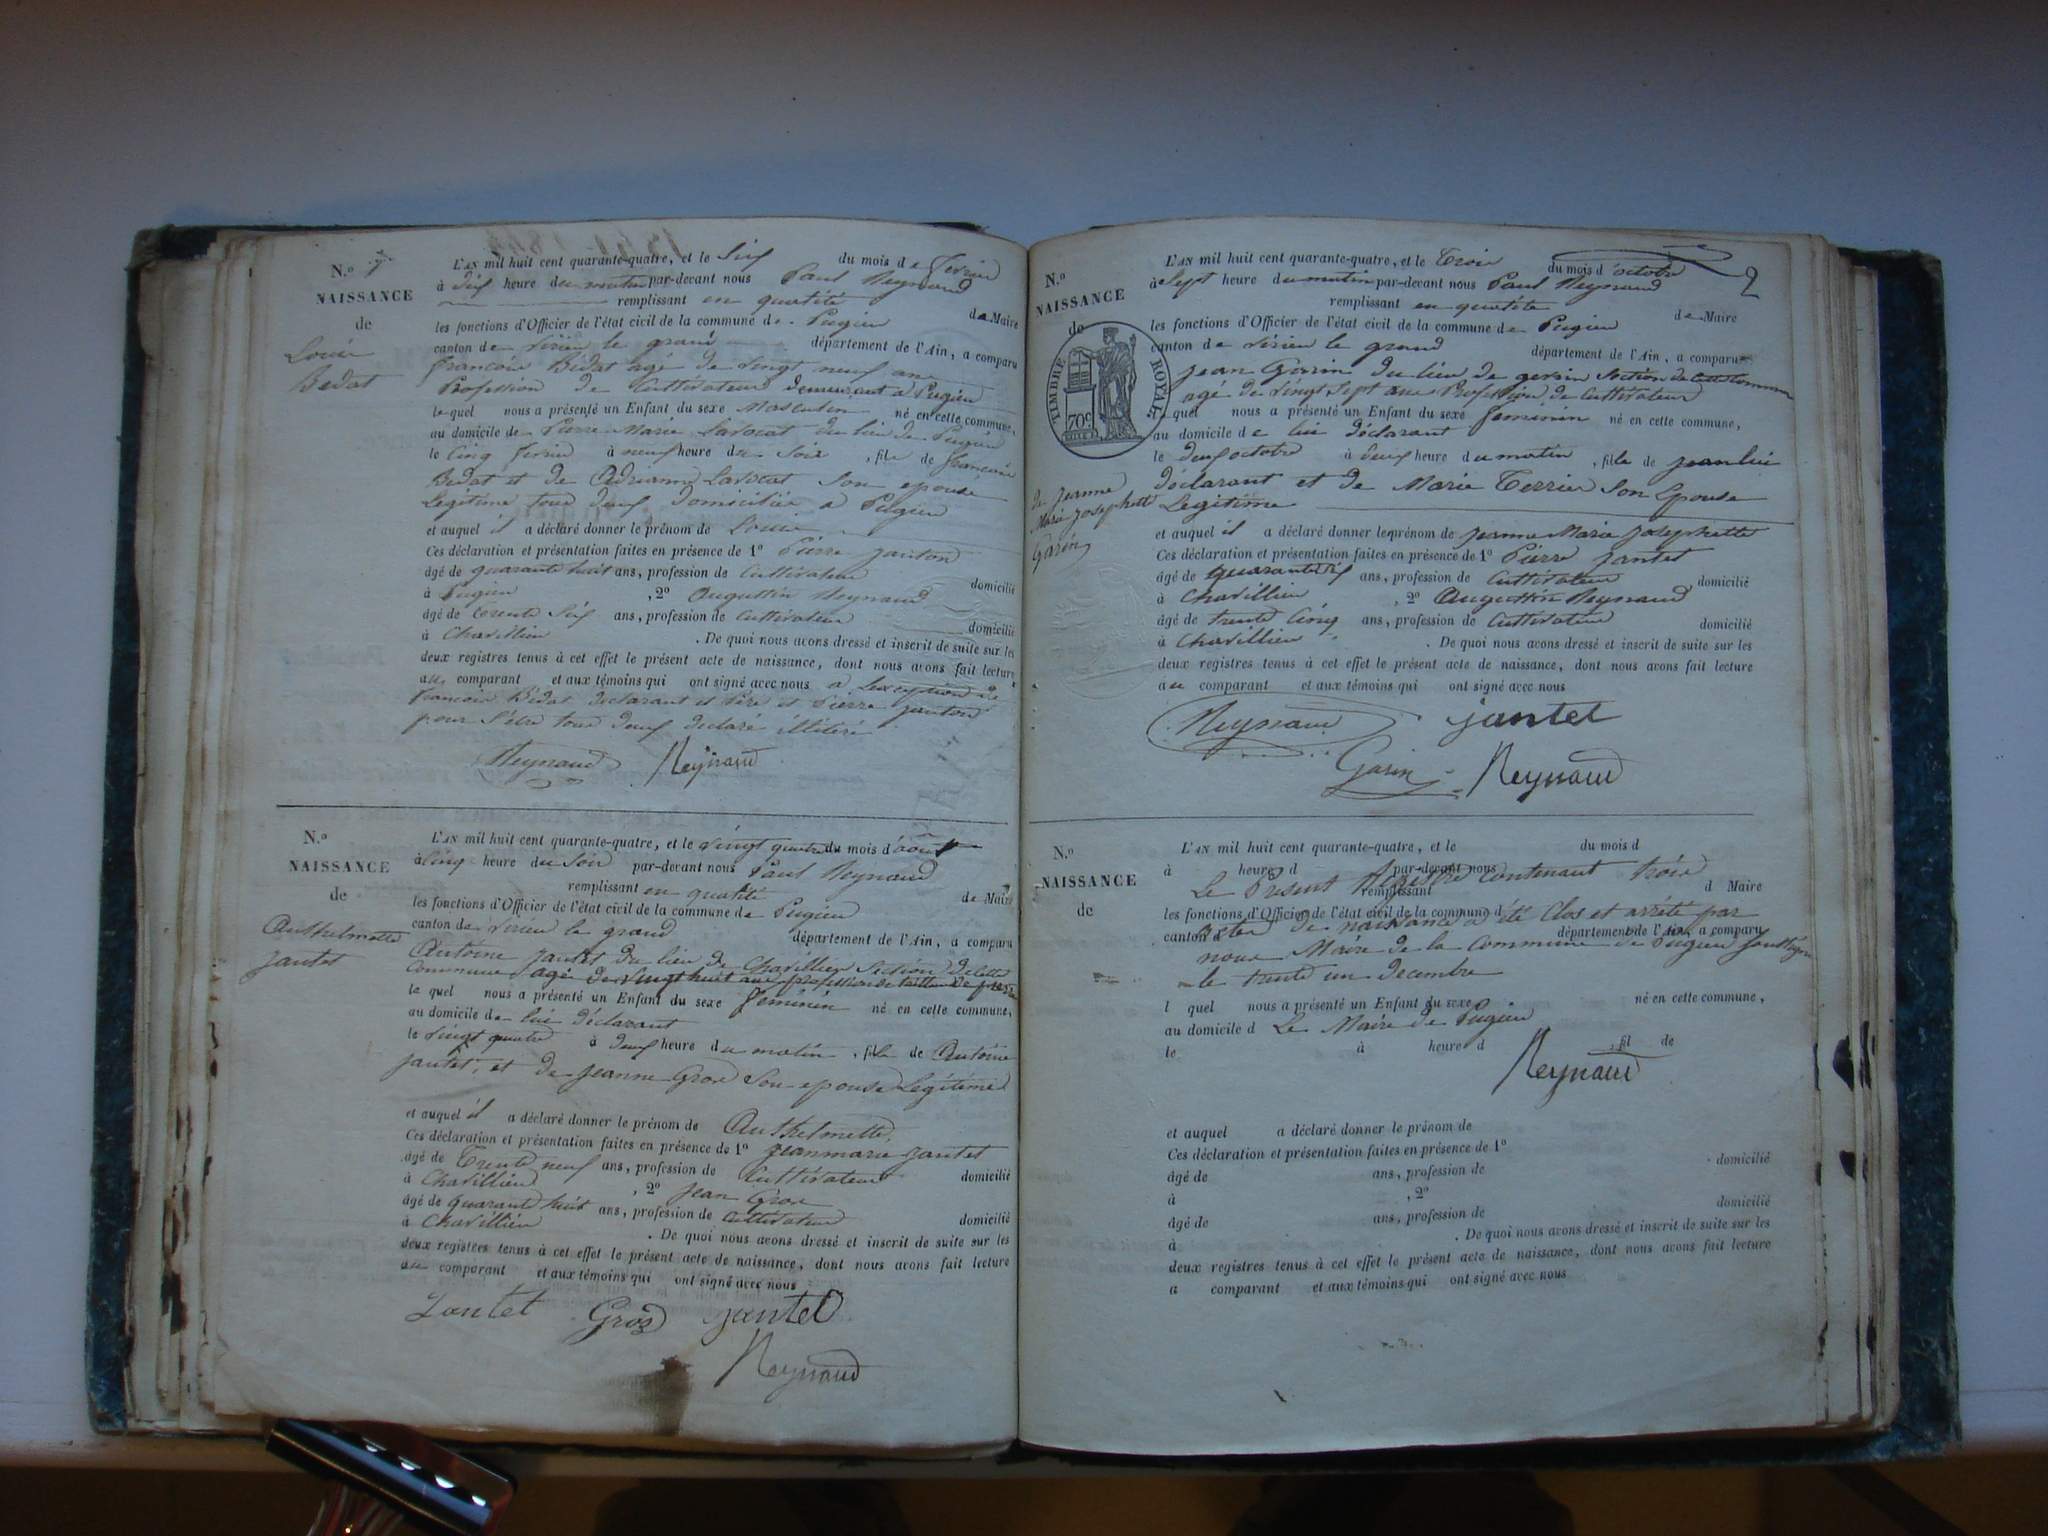 N.º 1
NAISSANCE
de
Louis
Bédat
L'AN mil huit cent quarante-quatre, et le Six du mois de février
à dix heure du matin par-devant nous Paul Reynaud
remplissant en qualité de Maire
les fonctions d'Officier de l'état civil de la commune de Pugieu
canton de Virieu le grand département de l'Ain, a comparu
françois Bédat agé de vingt neuf ans
Profession de Cultivateur demeurant à Pugieu
lequel nous a présenté un Enfant du sexe Masculin né en cette commune,
au domicile de Pierre Marie Lavocat du lieu de Pugieu
le Cinq février à neuf heure du Soir, fils de françois
Bédat et de Adrianne Lavocat Son epouse
Legitime tous deux Domiciliés a Pugieu
et auquel il a déclaré donner le prénom de Louis
Ces déclaration et présentation faites en présence de 1º Pierre Janton
âgé de quarante huit ans, profession de Cultivateur domicilié
à Pugieu, 2º Augustin Reynaud
âgé de trente Six ans, profession de Cultivateur domicilié
à Chavillieu. De quoi nous avons dressé et inscrit de suite sur les
deux registres tenus à cet effet le présent acte de naissance, dont nous avons fait lecture
au comparant et aux témoins qui ont signé avec nous a Lexception de
francois Bédat declarant et Père et Pierre Janton
pour Sêtre tous deux declaré illitéré
Reynaud Reynaud
N.º
NAISSANCE
de
Anthelmette
Jantet
L'AN mil huit cent quarante-quatre, et le vingt quatre du mois d'août
à Cinq heure du Soir par-devant nous Paul Reynaud
remplissant en qualité de Maire
les fonctions d'Officier de l'état civil de la commune de Pugieu
canton de Virieu le grand département de l'Ain, a comparu
Antoine Jantet du lieu de Chavillieu Section de Cette
Commune agé de vingt huit ans profession de tailleur de pierre
lequel nous a présenté un Enfant du sexe féminin né en cette commune,
au domicile de lui déclarant
le vingt quatre à deux heure du matin, fille de Antoine
Jantet, et de Jeanne Gros Son epouse Legitime
et auquel il a déclaré donner le prénom de Anthelmette
Ces déclaration et présentation faites en présence de 1º Jean marie Jantet
âgé de trente neuf ans, profession de Cultivateur domicilié
à Chavillieu, 2º Jean Gros
âgé de quarante huit ans, profession de Cultivateur domicilié
à Chavillieu. De quoi nous avons dressé et inscrit de suite sur les
deux registres tenus à cet effet le présent acte de naissance, dont nous avons fait lecture
au comparant et aux témoins qui ont signé avec nous
Jantet Gros Jantet
Reynaud
2
N.º
NAISSANCE
de
TIMBRE ROYAL
70c
de Jeanne
Marie Josephette
Garin
L'AN mil huit cent quarante-quatre, et le Trois du mois d'octobre
à Sept heure du matin par-devant nous Paul Reynaud
remplissant en qualité de Maire
les fonctions d'Officier de l'état civil de la commune de Pugieu
canton de Virieu le grand département de l'Ain, a comparu
Jean Garin du lieu de Section de Cette Commune
agé de vingt Sept ans Profession de Cultivateur
lequel nous a présenté un Enfant du sexe féminin né en cette commune,
au domicile de lui déclarant
le deux octobre à deux heure du matin, fille de Jean lui
déclarant et de Marie Terrier Son Epouse
Legitime
et auquel il a déclaré donner le prénom de Jeanne Marie Josephette
Ces déclaration et présentation faites en présence de 1º Pierre Jantet
âgé de quarante six ans, profession de Cultivateur domicilié
à Chavillieu, 2º Augustin Reynaud
âgé de trente Cinq ans, profession de Cultivateur domicilié
à Chavillieu. De quoi nous avons dressé et inscrit de suite sur les
deux registres tenus à cet effet le présent acte de naissance, dont nous avons fait lecture
au comparant et aux témoins qui ont signé avec nous
Reynaud Jantet
Garin Reynaud
N.º
NAISSANCE
de
L'AN mil huit cent quarante-quatre, et le du mois d
à heure d par-devant nous
Le Présent Registre Contenant trois
remplissant d Maire
les fonctions d'Officier de l'état civil de la commune d
actes de naissance a été Clos et arrêté par
canton d département de l'Ain, a comparu
nous Maire de la Commune de Pugieu
le trente un decembre
l quel nous a présenté un Enfant du sexe né en cette commune,
au domicile d Le Maire de Pugieu
le à heure d, fil de
Reynaud
et auquel a déclaré donner le prénom de
Ces déclaration et présentation faites en présence de 1º
âgé de ans, profession de domicilié
à, 2º
âgé de ans, profession de domicilié
à. De quoi nous avons dressé et inscrit de suite sur les
deux registres tenus à cet effet le présent acte de naissance, dont nous avons fait lecture
a comparant et aux témoins qui ont signé avec nous